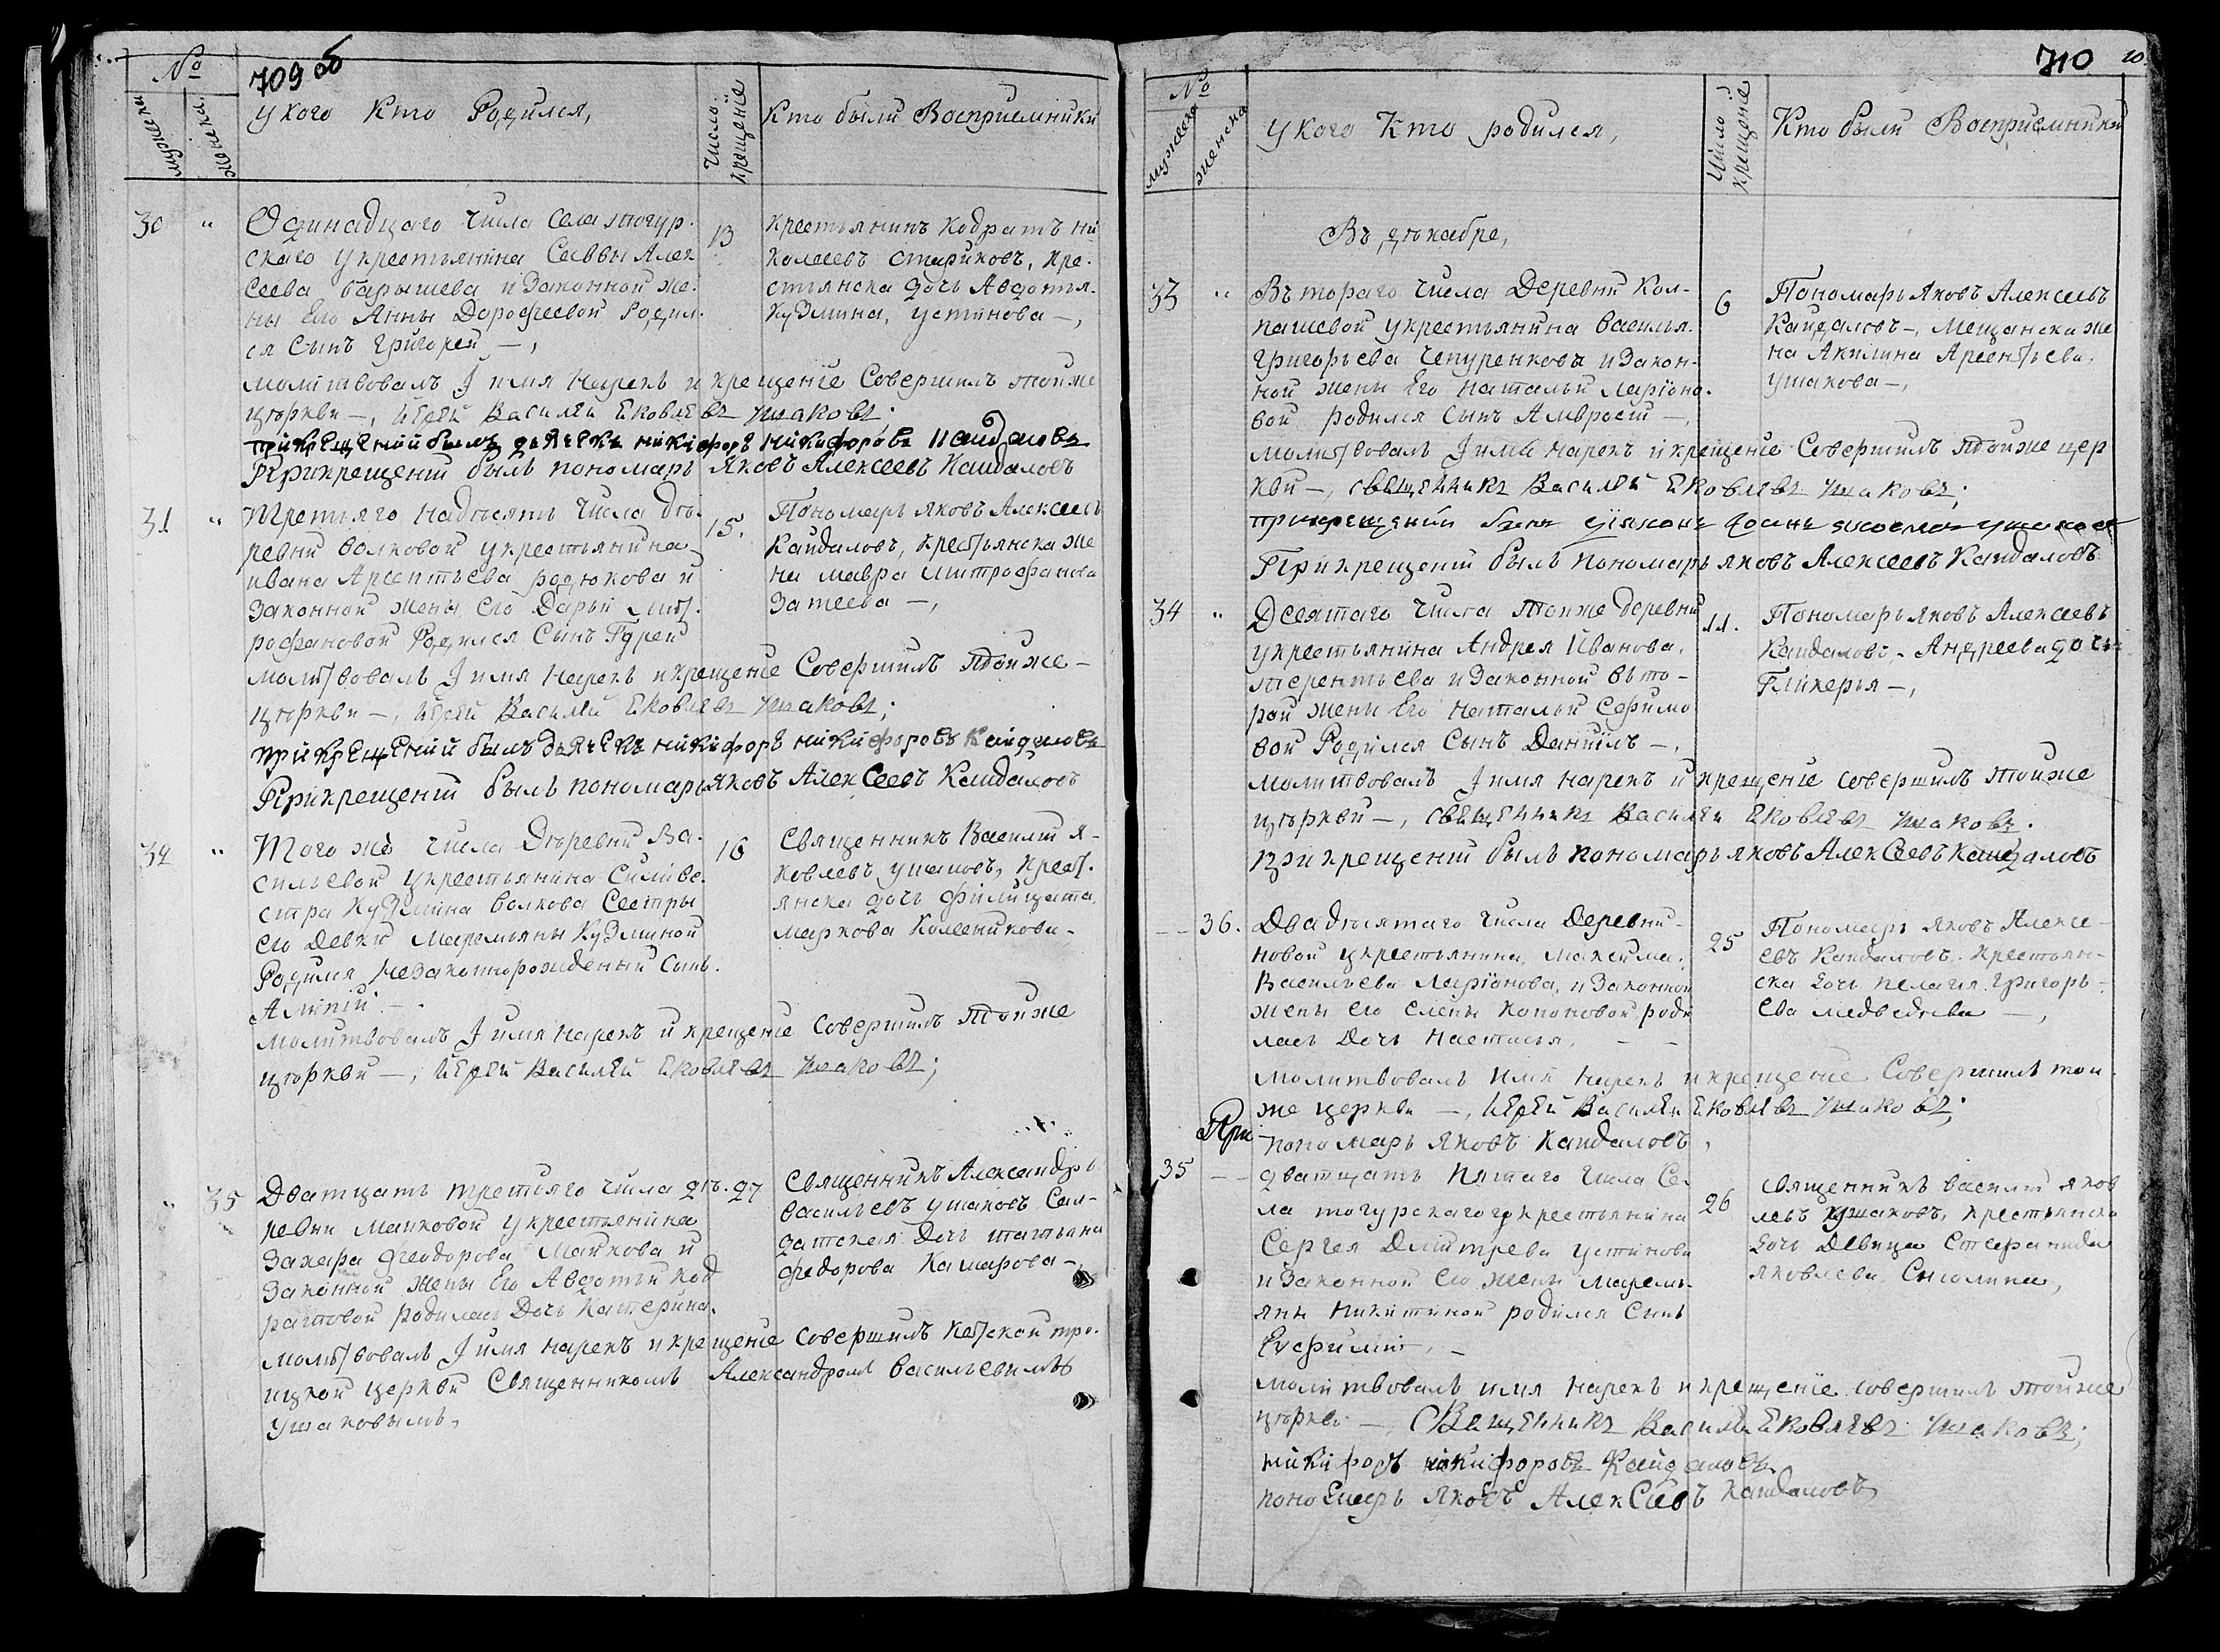 709 об
№
мужеска
женска
У кого кто Родился,
Число крещение
Кто были Восприемники
30
"
Одинадцаго числа села тогур-
скаго у крестьянина Саввы Алек
сеева барышева и Законной же-
ны Его Анны Дорофеевой Родил-
ся Сынъ Григорей —,
13
крестьянинъ Кодратъ ни
колаевъ стариковъ, кре-
стьянска дочь Авдотья
Кузмина, устинова —,
молитвовалъ I имя нарекъ и крещение Совершилъ тойже
церкви —, иерей Василей Яковлевъ Ушаковъ;
при крещений былъ дьячекъ никифоръ никифоровъ Кайдаловъ
При крещении былъ пономарь Яковъ Алексеевъ Кайдаловъ
31
"
Третьяго Надесять числа де-
ревни волковой у крестьянина
ивана Арсентьева родюкова и
Законной жены его Дарьи Мит-
рофановой Родился Сынъ Гурей
15.
Пономарь Яковъ Алексеевъ
Кайдаловъ, крестьянска же
на мавра Митрофанова
Затеева —,
молитвовалъ I имя нарекъ и крещение Совершилъ тойже
церкви —, иерей Василей Яковлевъ Ушаковъ;
при крещений былъ дьячекъ никифоръ никифоровъ Кайдаловъ
При крещении былъ пономарь Яковъ Алексеевъ Кайдаловъ
32
"
Того же числа Деревни Ва-
сильевой у крестьянина Силиве-
стра Кузмина волкова Сестры
его Девки Маремьяны Кузминой
Родился Незаконнорожденый Сынъ
Алипий —.
16
Священникъ Василий Я-
ковлевъ ушаковъ, крест-
янска дочь Филицата
маркова Колесникова —
молитвовалъ I имя нарекъ и крещение Совершилъ тойже
церкви —, иерей Василей Яковлевъ Ушаковъ;
"
35
Дватцать третьяго числа де-
ревни маиковой у крестьянина
Захара Феодорова Маикова и
Законной жены Его Авдотьи Код
ратовой родилась Дочь Катерина.
27
Священникъ Александръ
васильевъ ушаковъ Сол-
датская Дочь татьяна
федорова Камарова —
молитвовалъ I имя нарекъ и крещение совершилъ Кетской тро-
ицкой церкви Священникомъ Александром васильевимъ
Ушаковымъ,
710
№
мужеска
женска
У кого Кто родился,
Число крещение
Кто были Восприемники
Въ декабре,
33
"
Вътораго числа Деревни Кол-
пашевой у крестьянина василья
григорьева Чепуренковъ и Закон-
ной жены Его Натальи Ларионо-
вой родился Сынъ Амвросий —,
6
Пономарь Яковъ Алексеевъ
Кайдаловъ —, Мещанска же
на Акилина Арсентьева
ушакова —,
молитвовалъ I имя нарекъ и крещение Совершилъ тойже цер
кви —, священникъ Василей Яковлевъ Ушаковъ;
При крещении былъ пономарь Яковъ Алексеевъ Кайдаловъ
34
"
Десятаго числа тоиже деревни
у крестьянина Андрея Иванова
терентьева и Законной въто-
рой жены Его Натальи Ефимо
вой Родился Сынъ Даниилъ —,
11.
Пономарь Яковъ Алексеевъ
Кайдаловъ, Андреева дочь
Гликерья —,
молитвовалъ I имя нарекъ и крещение совершилъ тойже
церкви —, священникъ Василей Яковлевъ Ушаковъ.
При крещении былъ пономарь Яковъ Алексеевъ Кайдаловъ
36.
Двадесятаго числа Деревни
новой у крестьянина Максима
Васильева Ларионова, и Законной
жены его Елены Кононовой роди
лась Дочь Настасья.
25
Пономарь Яковъ Алексе-
евъ Кайдаловъ. Крестьян-
ска дочь пелагия Григорь-
ева медведева —,
молитвовалъ имя нарекъ и крещение Совершилъ той
же церкви —, иерей Василей Яковлевъ Ушаковъ;
При пономарь Яковъ Кайдаловъ,
35
дватцать пятаго числа Се-
ла тогурскаго у крестьянина
Сергея Дмитрева устинова
и Законной его жены Маремь-
яны Никитиной родился Сынъ
Евфимий, —
26
Священникъ василий яков
левъ ушаковъ, крестьянска
дочь Девица Стефанида
яковлева,
молитвовалъ имя нарекъ и крещение совершилъ тойже
церкви —, Священникъ Василей Яковлевъ Ушаковъ;
никифоръ никифоровъ Кайдаловъ
пономарь Яковъ Алексеевъ Кайдаловъ